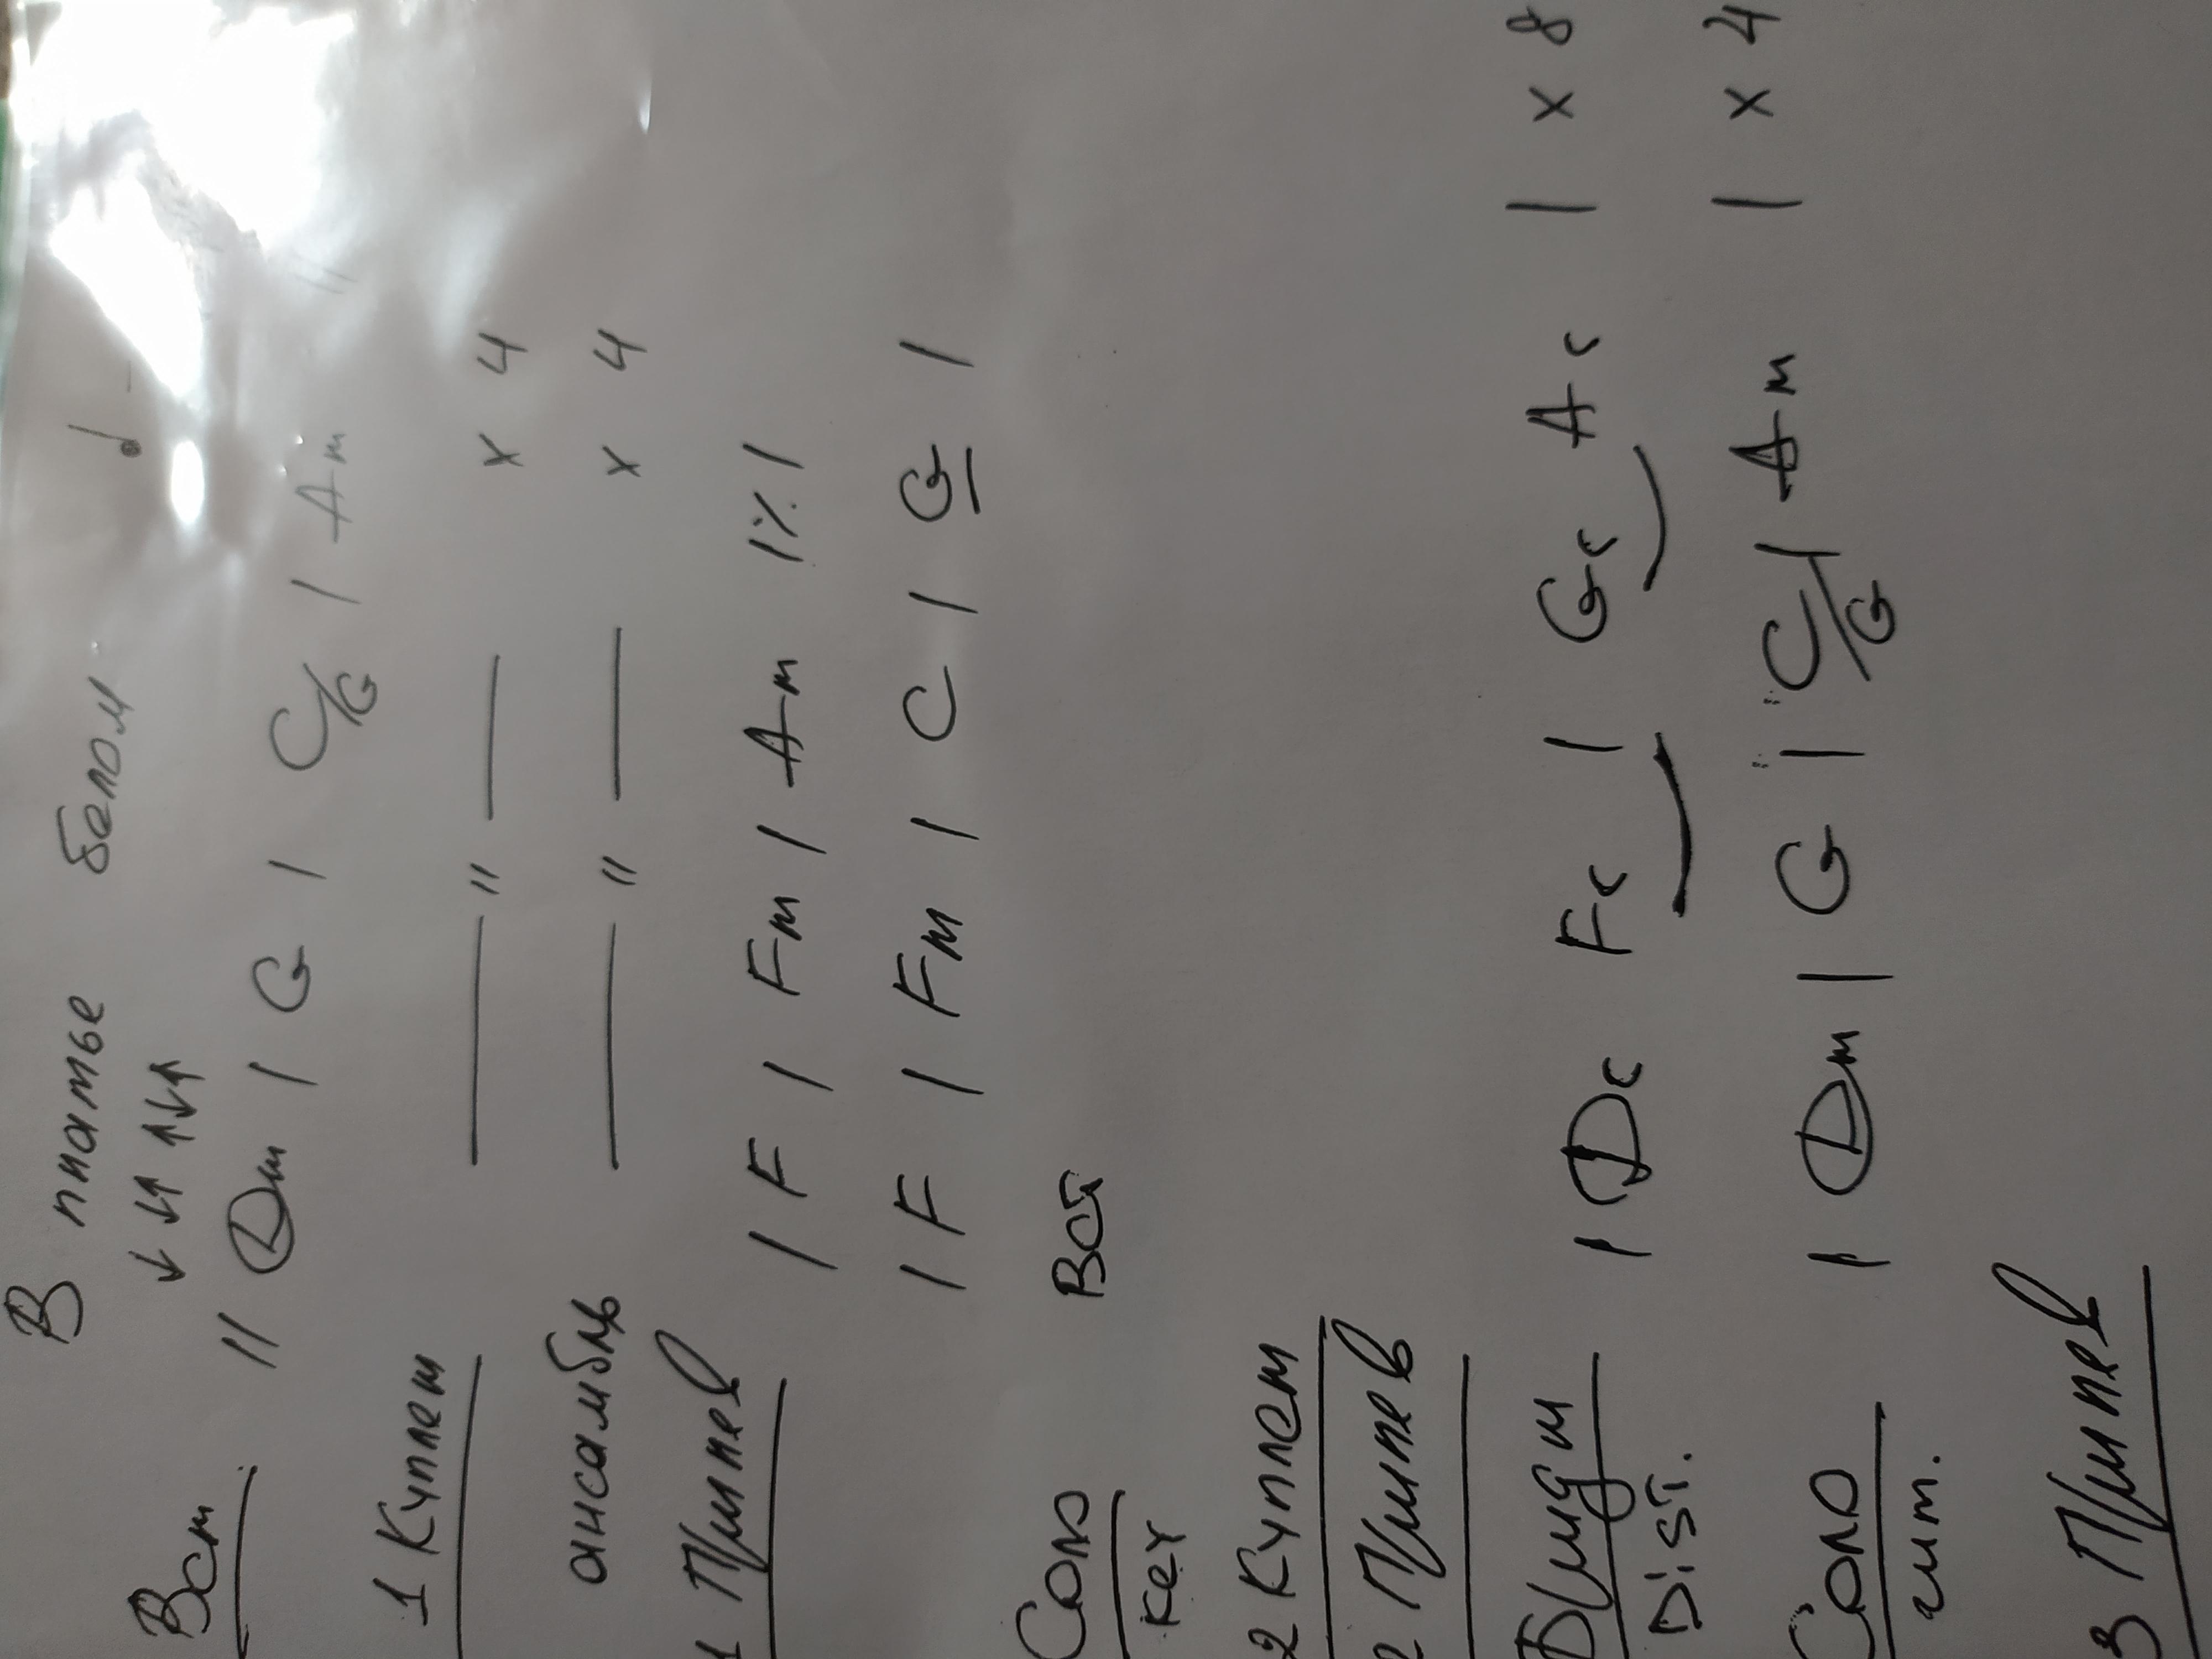 В платье белом
↓ ↓↑ ↑↓↑ ♩ -
Вст || Dm | G | C/G | Am ||
1 Куплет —— " —— x 4
ансамбль —— " —— x 4
1 Припев | F | Fm | Am | ٪ |
| F | Fm | C | G |
Соло Вст
Key
2 Куплет
2 Припев
Бридж | Dc Fc | Gc Ac | x 8
Dist.
Соло | Dm | G | C/G | Am | x 4
гит.
3 Припев